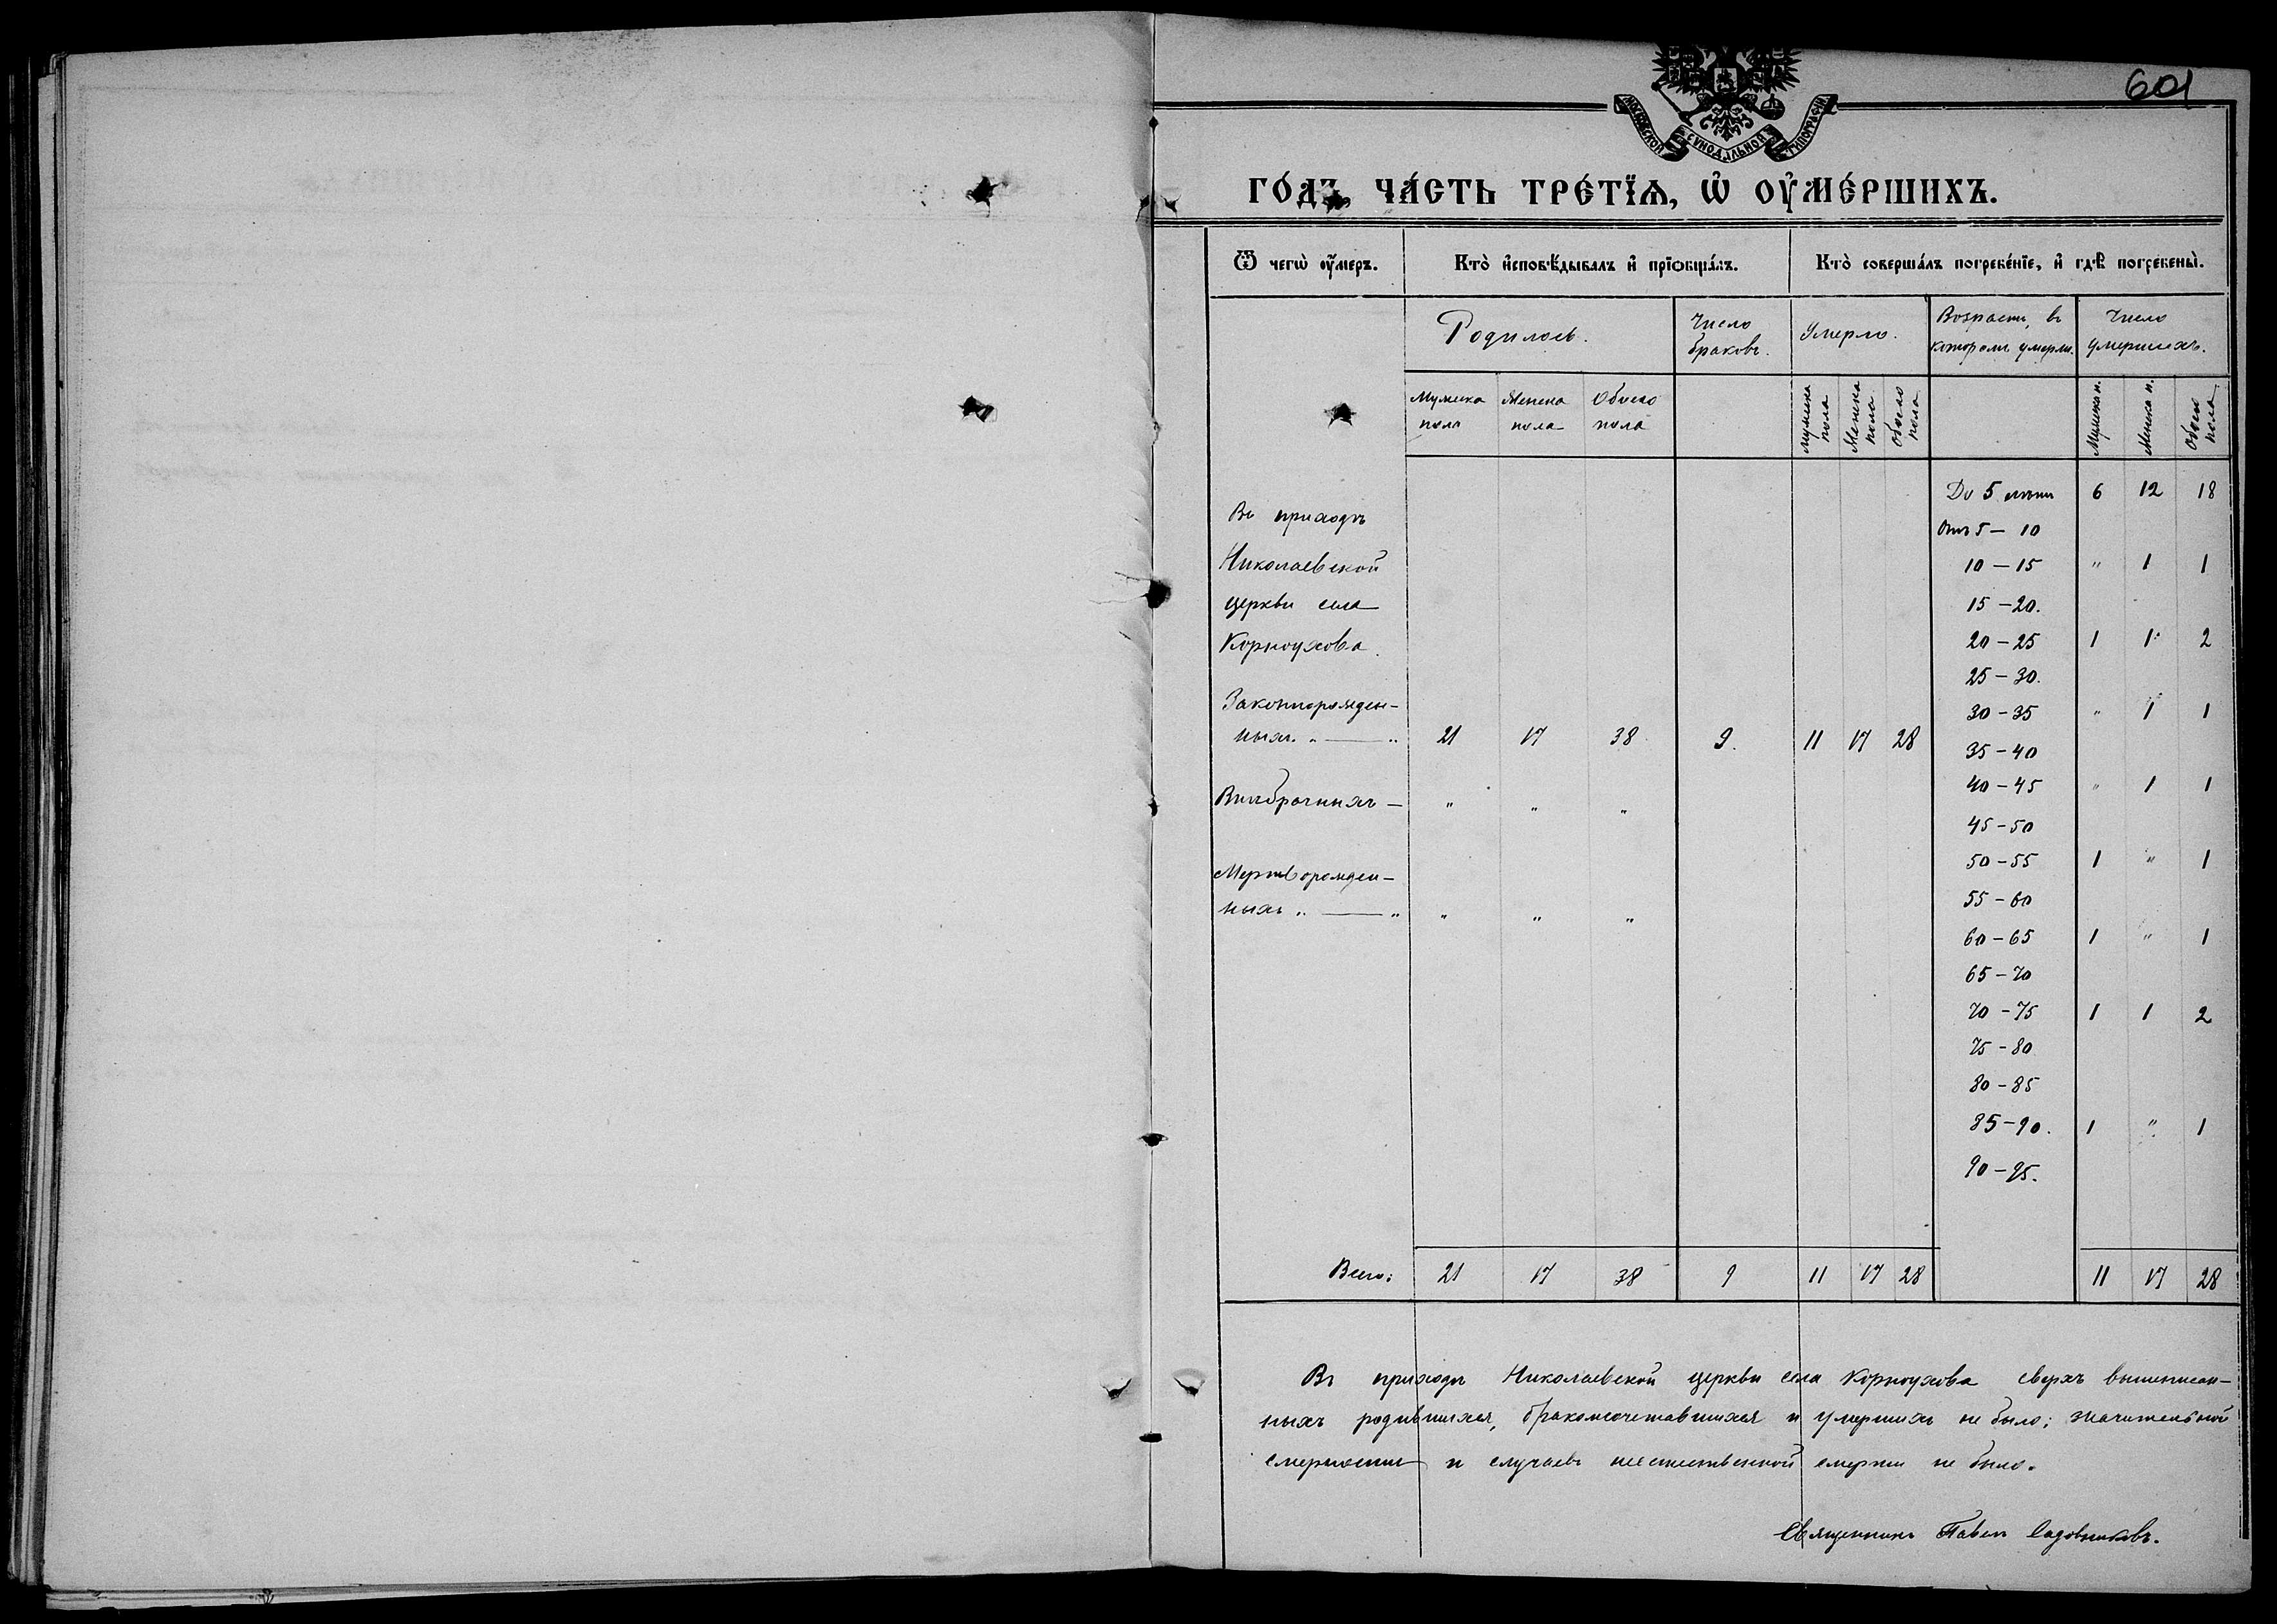 601
МОСКОВСКОЙ СѴНОДАЛЬНОЙ ТИПОГРАФІИ
ГО́ДЪ, ЧА́СТЬ ТРЕ́ТЇѦ, Ѡ҆ ОУ҆МЕ́РШИХЪ.
Ѿ чегѡ̀ оу҆́меръ. Кто̀ и҆сповѣ́дывалъ и҆ прїѡбща́лъ. Кто̀ соверша́лъ погребе́нїе, и҆ гдѣ̀ погребены̀.
Родилось. Число браковъ. Умерло. Возрасты, въ которомъ умерли. Число умершихъ.
Мужска пола Женска пола Обоего пола Мужска пола Женска пола Обоего пола Мужска п. Женска п. Обоего пола
До 5 лѣтъ 6 12 18
Въ приходѣ
Отъ 5 — 10
Николаевской
10 — 15 " 1 1
церкви села
15 — 20.
Корноухова.
20 — 25 1 1 2
25 — 30.
Законнорожден-
30 — 35 " 1 1
ныхъ " — " 21 17 38 9. 11 17 28
35 — 40
40 — 45 " 1 1
Внѣбрачныхъ — " " "
45 — 50
50 — 55 1 " 1
Мертворожден-
55 — 60
ныхъ " — " " " "
60 — 65 1 " 1
65 — 70
70 — 75 1 1 2
75 — 80
80 — 85
85 — 90. 1 " 1
90 — 95.
Всего: 21 17 38 9 11 17 28 11 17 28
Въ приходѣ Николаевской церкви села Корноухова сверхъ вышеписан-
ныхъ родившихся, бракомсочетавшихся и умершихъ не было; значительной
смертности и случаевъ неестественной смерти не было.
Священникъ Павелъ Садовниковъ.